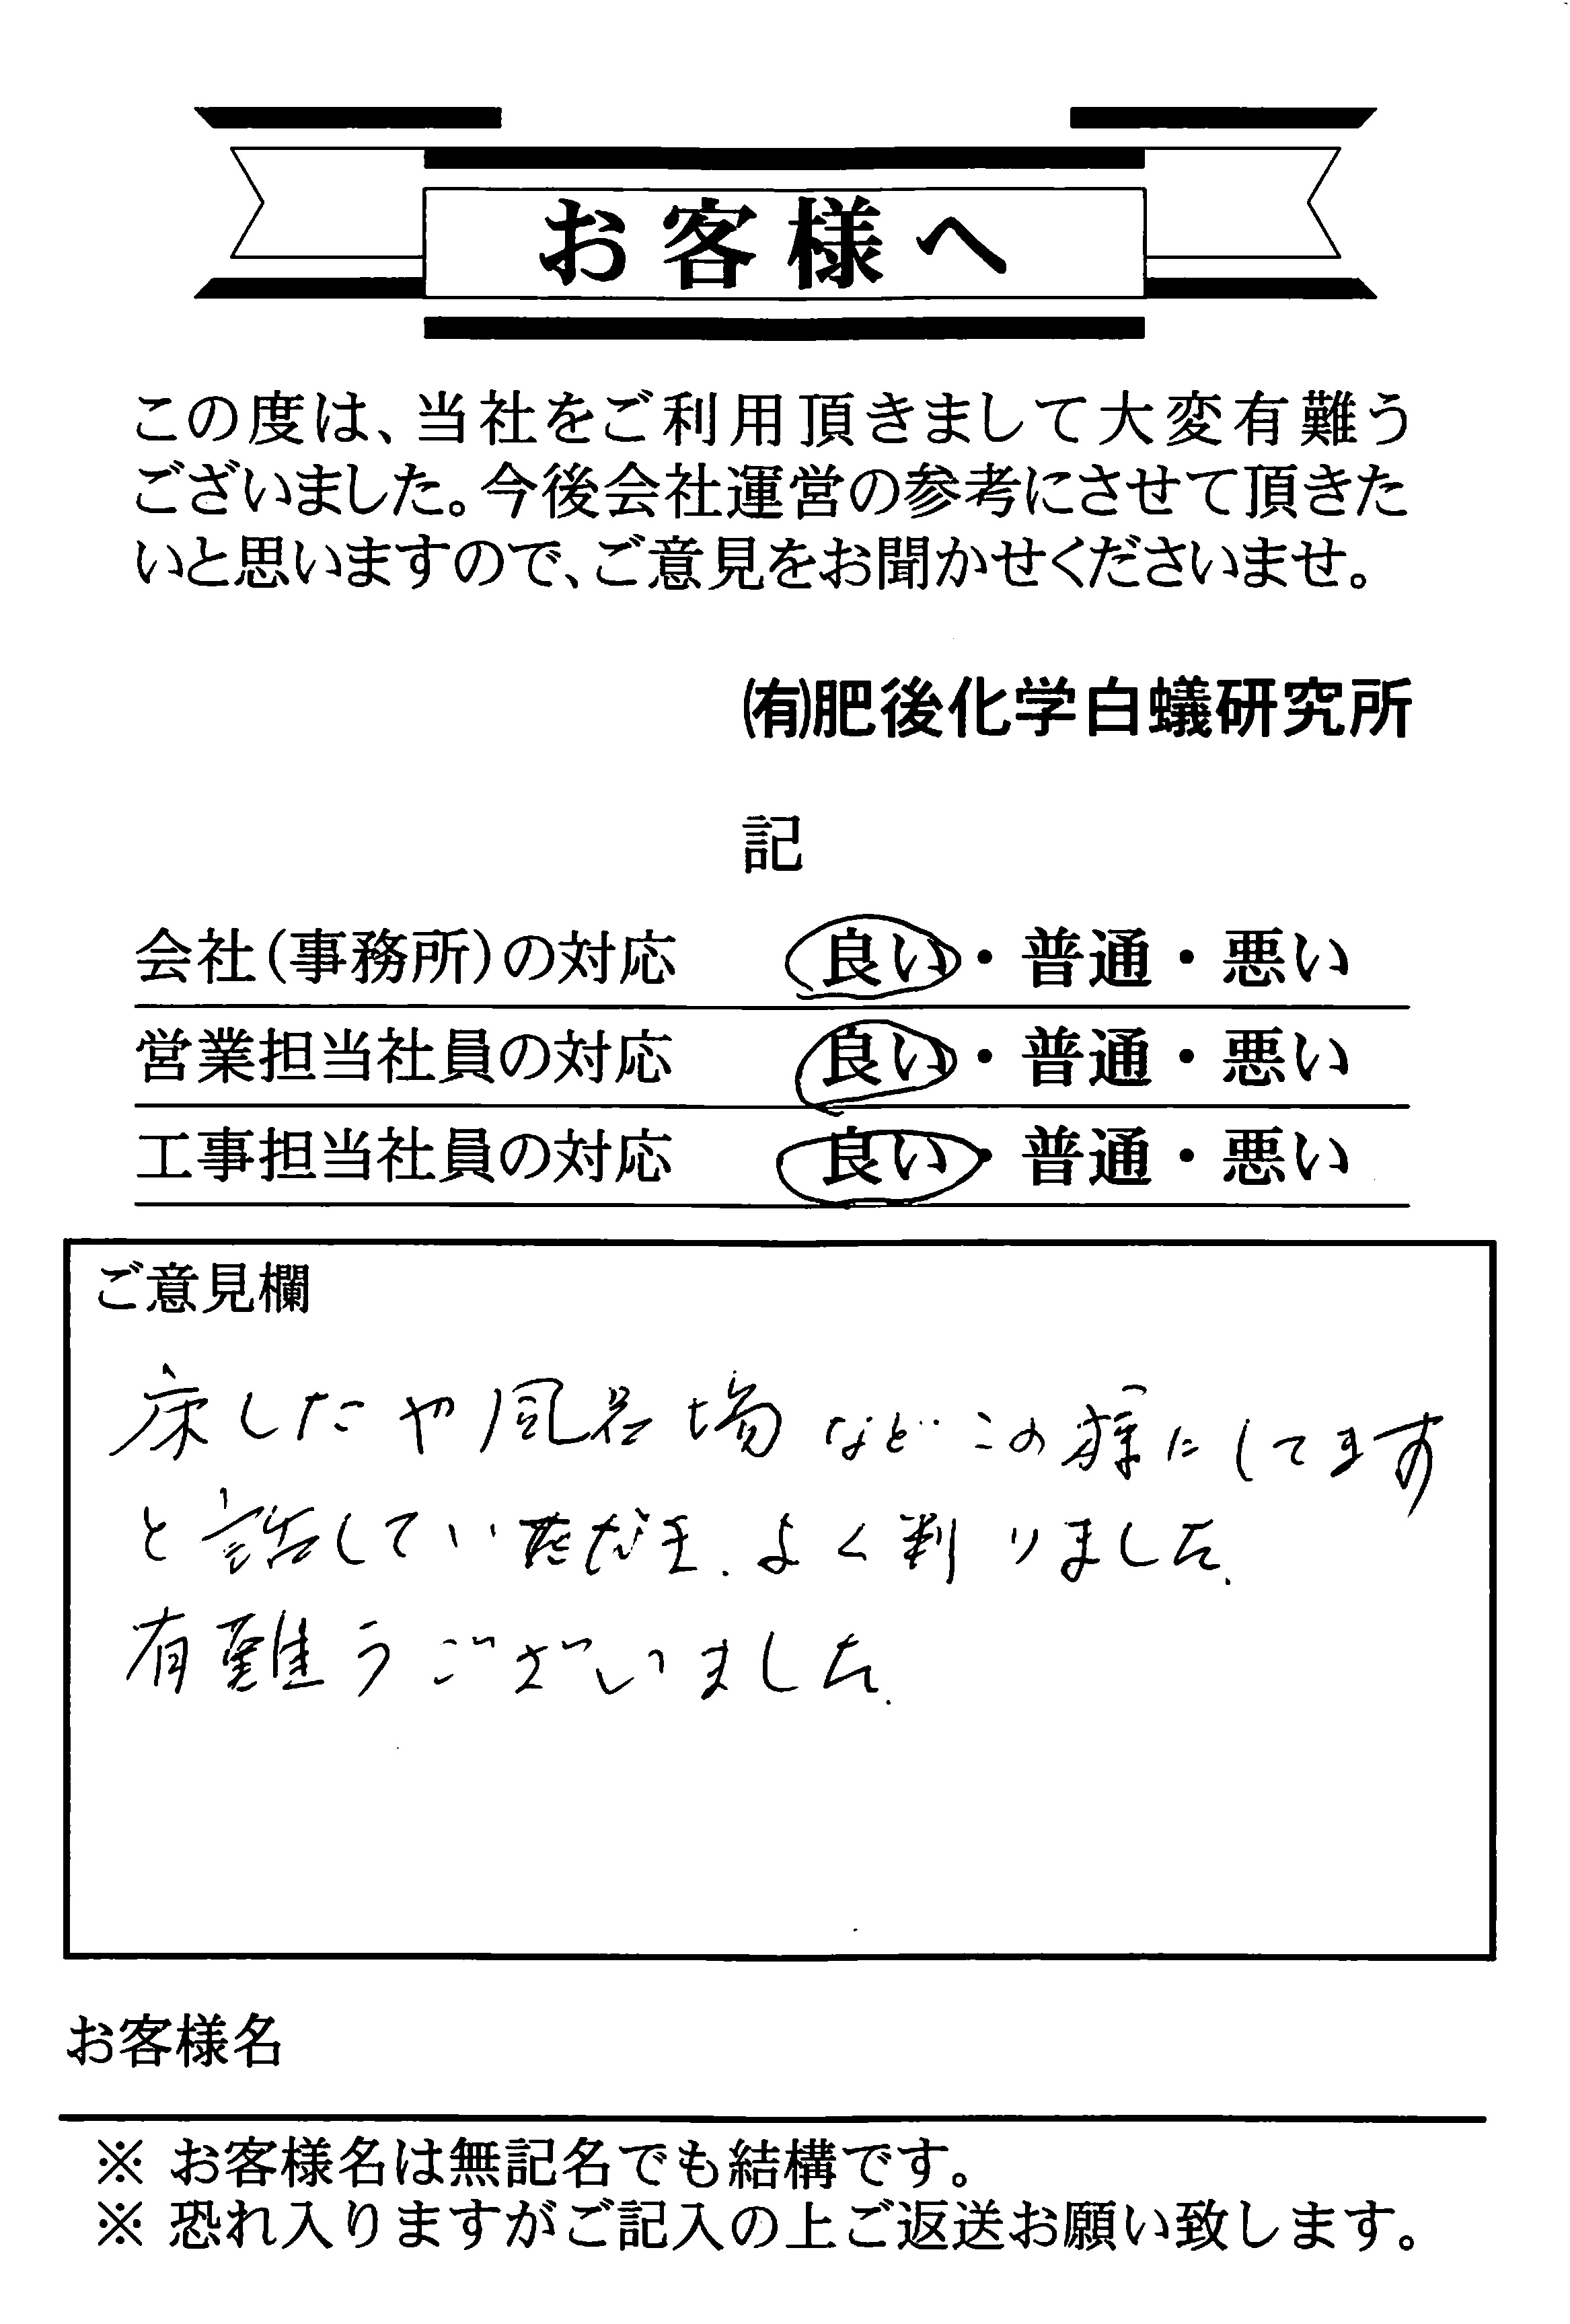 お客様へ
この度は、当社をご利用頂きまして大変有難う
ございました。今後会社運営の参考にさせて頂きた
いと思いますので、ご意見をお聞かせくださいませ。
㈲肥後化学白蟻研究所
記
会社(事務所)の対応 良い・普通・悪い
営業担当社員の対応 良い・普通・悪い
工事担当社員の対応 良い・普通・悪い
ご意見欄
床したや風呂場などこの様にしてます
と話していただき.よく判りました.
有難うございました.
お客様名
※ お客様名は無記名でも結構です。
※ 恐れ入りますがご記入の上ご返送お願い致します。